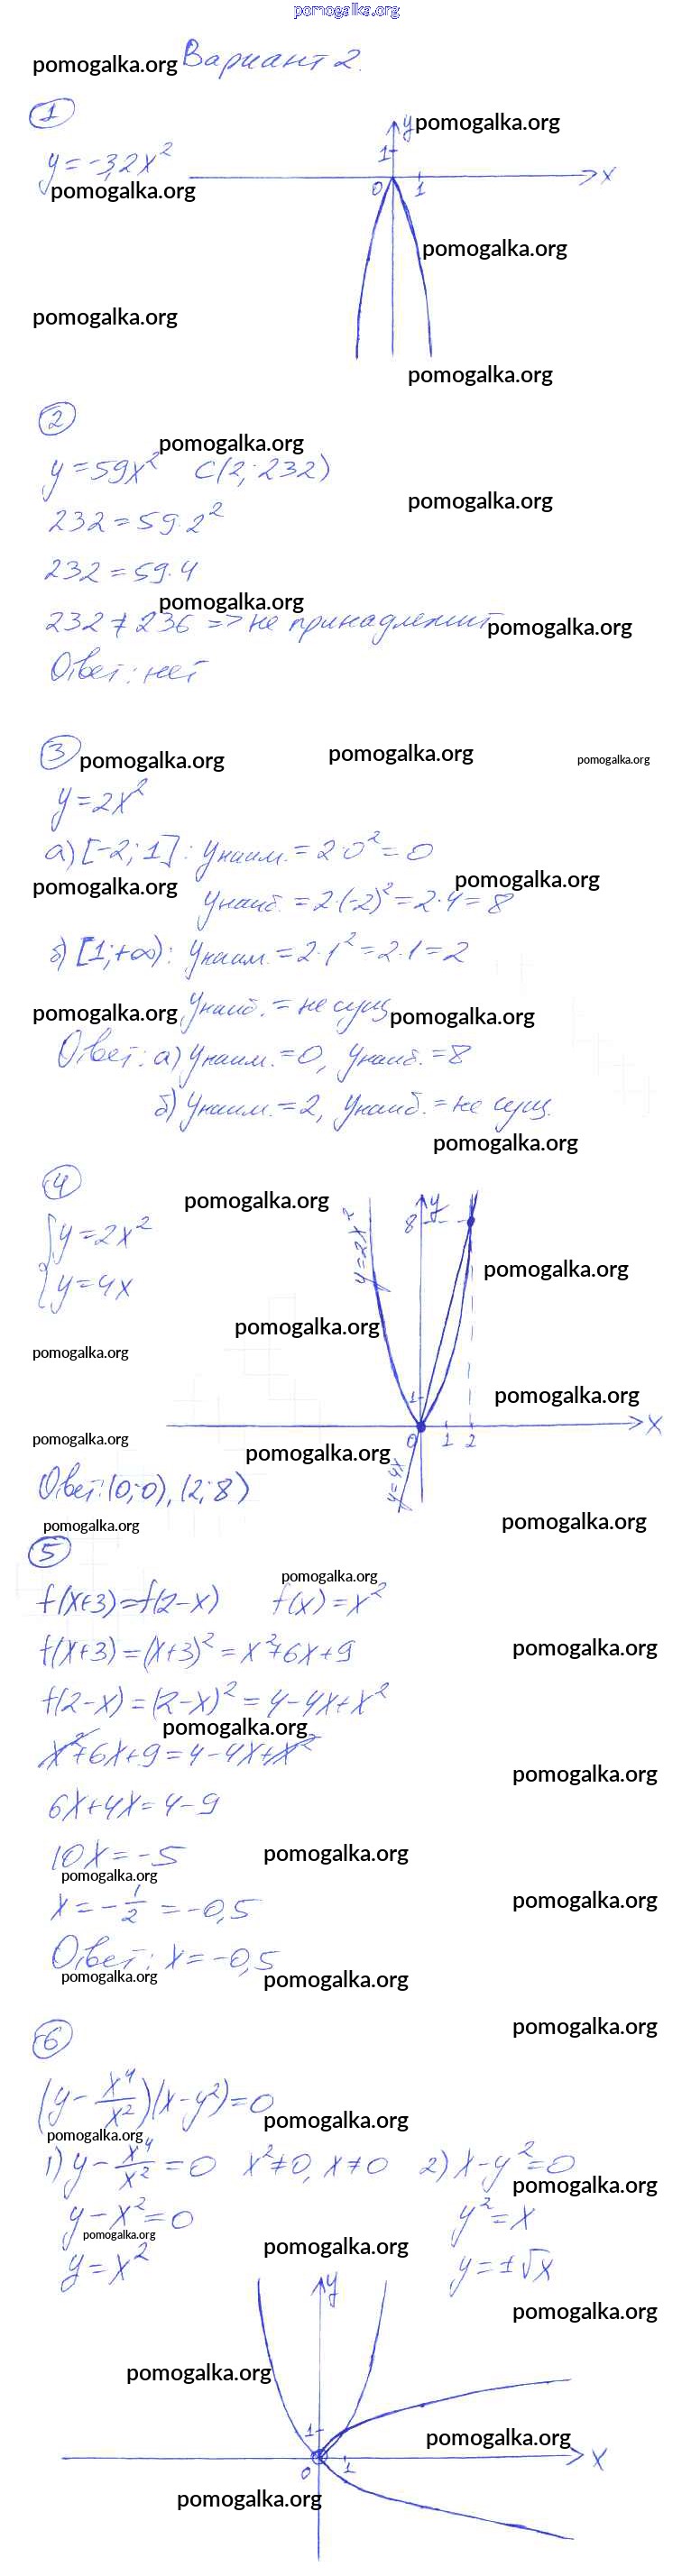 pomogalka.org
pomogalka.org Вариант 2.
1
y pomogalka.org
y = -3,2x²
1
0 1 x
pomogalka.org
pomogalka.org
pomogalka.org
pomogalka.org
2
pomogalka.org
y = 59x² C(2; 232)
pomogalka.org
232 = 59·2²
232 = 59·4
pomogalka.org
232 ≠ 236 => не принадлежит
pomogalka.org
Ответ: нет
3 pomogalka.org pomogalka.org pomogalka.org
y = 2x²
а) [-2; 1]: yнаим. = 2·0² = 0
pomogalka.org pomogalka.org
yнаиб. = 2·(-2)² = 2·4 = 8
б) [1; +∞): yнаим. = 2·1² = 2·1 = 2
pomogalka.org yнаиб. = не сущ pomogalka.org
Ответ: а) yнаим. = 0, yнаиб. = 8
б) yнаим. = 2, yнаиб. = не сущ.
pomogalka.org
4
pomogalka.org y = 2x² y
8
y = 2x²
y = 4x
pomogalka.org
pomogalka.org
pomogalka.org
pomogalka.org
1
0 1 2 x
pomogalka.org
pomogalka.org
y = 4x
Ответ: (0; 0), (2; 8)
pomogalka.org pomogalka.org
5
pomogalka.org
f(x+3) = f(2-x) f(x) = x²
f(x+3) = (x+3)² = x²+6x+9 pomogalka.org
f(2-x) = (2-x)² = 4-4x+x²
pomogalka.org
x²+6x+9 = 4-4x+x²
pomogalka.org
6x+4x = 4-9
10x = -5 pomogalka.org
pomogalka.org
x = -1/2 = -0,5 pomogalka.org
Ответ: x = -0,5
pomogalka.org pomogalka.org
pomogalka.org
6
(y - x⁴/x²)(x-y²) = 0
pomogalka.org
pomogalka.org
1) y - x⁴/x² = 0 x² ≠ 0, x ≠ 0 2) x-y² = 0
pomogalka.org
y-x² = 0 y² = x
pomogalka.org
pomogalka.org
y = x² y = ±√x
y
pomogalka.org
pomogalka.org
1 pomogalka.org
0 1 x
pomogalka.org